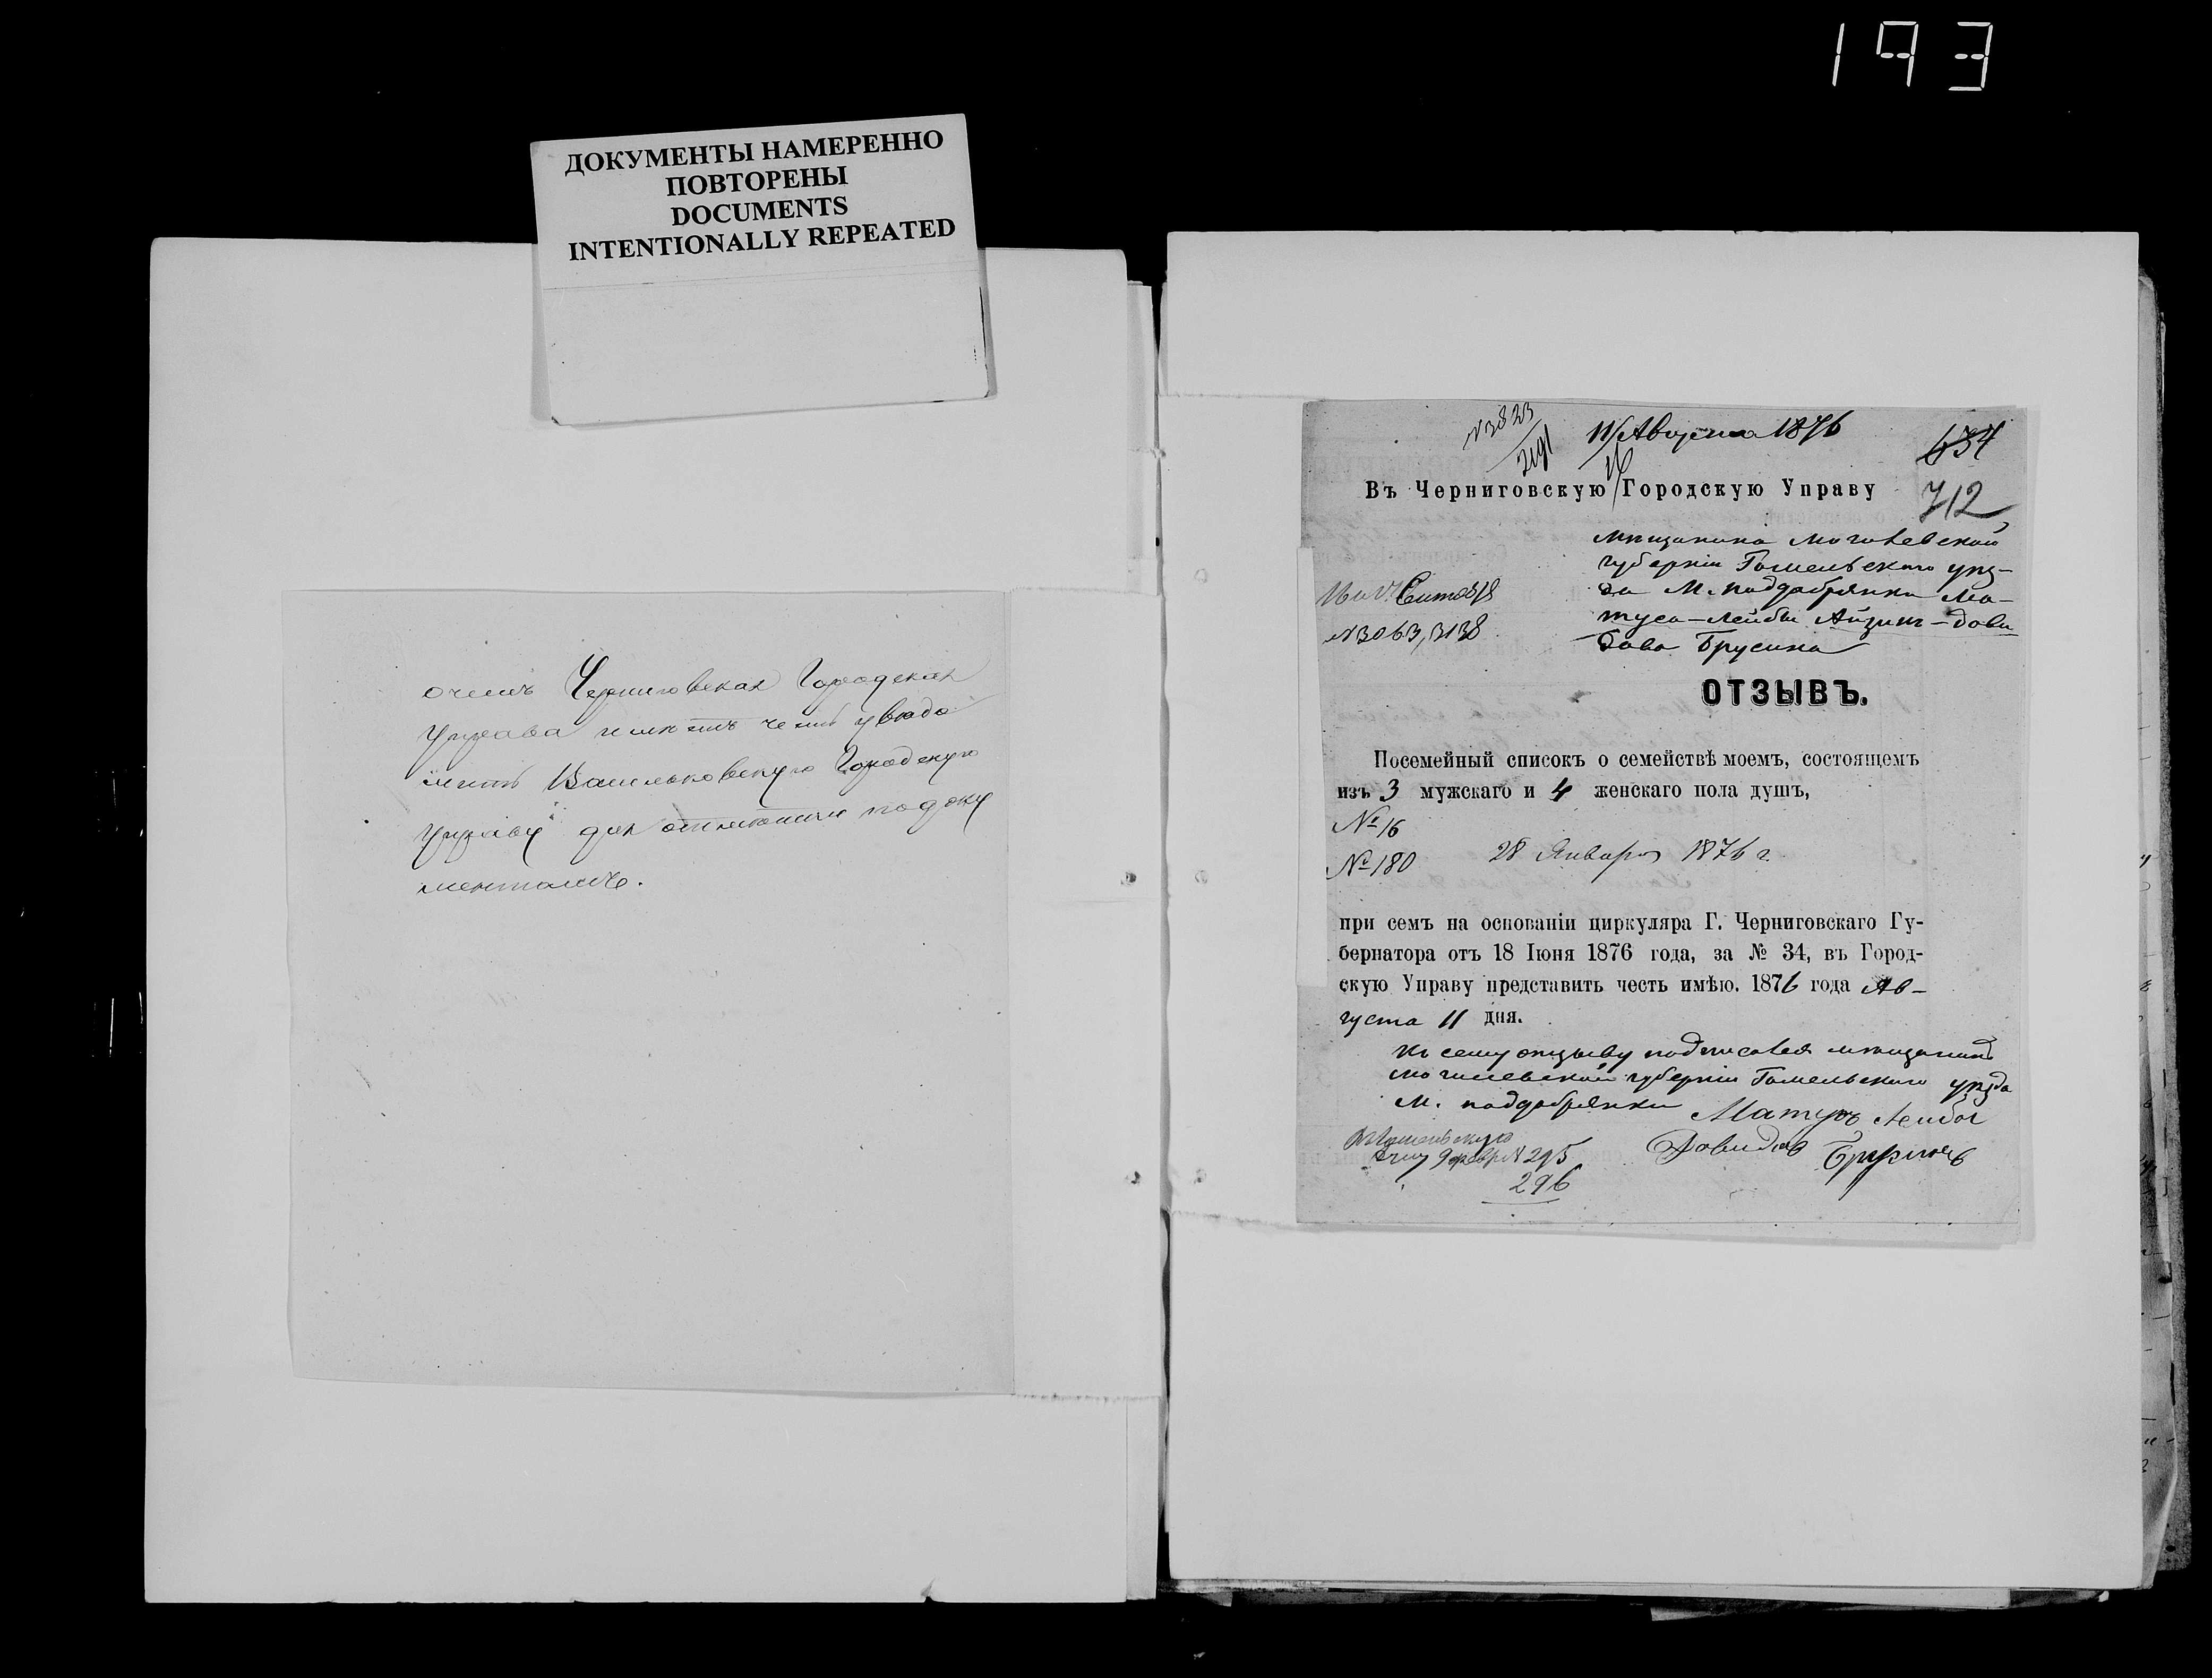 193
ДОКУМЕНТЫ НАМЕРЕННО
ПОВТОРЕНЫ
DOCUMENTS
INTENTIONALLY REPEATED
о чемъ Черниговская Городская
Управа имѣетъ честь увѣдо
мить Васильковскую Городскую
Управу для отмѣтки по доку
ментамъ.
№3823
2191
11 Августа 1876
16
634
712
Въ Черниговскую Городскую Управу
мѣщанина Могилевской
губерніи Гомельскаго уѣз-
да М. поддобрянки Ма-
туса-Лейбы Айзик-Дови
дова Брусина
№3063, 3138
ОТЗЫВЪ.
Посемейный списокъ о семействѣ моемъ, состоящемъ
изъ 3 мужскаго и 4 женскаго пола душъ,
№ 16
№ 180 28 Января 1876 г.
при семъ на основаніи циркуляра Г. Черниговскаго Гу-
бернатора отъ 18 Іюня 1876 года, за № 34, въ Город-
скую Управу представить честь имѣю. 1876 года Ав-
густа 11 дня.
Къ сему отзыву подписался мѣщанинъ
Могилевской губерніи Гомельскаго уѣзда
М. поддобрянки Матусъ Лейба
Довидовъ Брусинъ
№ 295
296